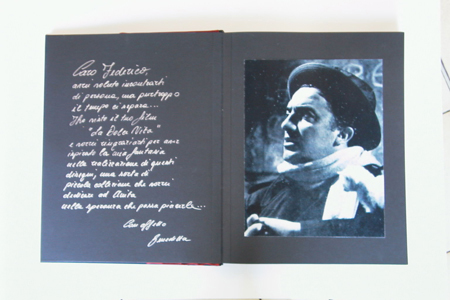 Caro Federico,
avrei voluto incontrarti
di persona, ma purtroppo
il tempo ci separa...
Ho visto il tuo film
"La Dolce Vita"
e vorrei ringraziarti per aver
ispirato la mia fantasia
nella realizzazione di questi
disegni, una sorta di
piccola collezione che vorrei
dedicare ad Anita
nella speranza che possa piacerle...
Con affetto
Benedetta